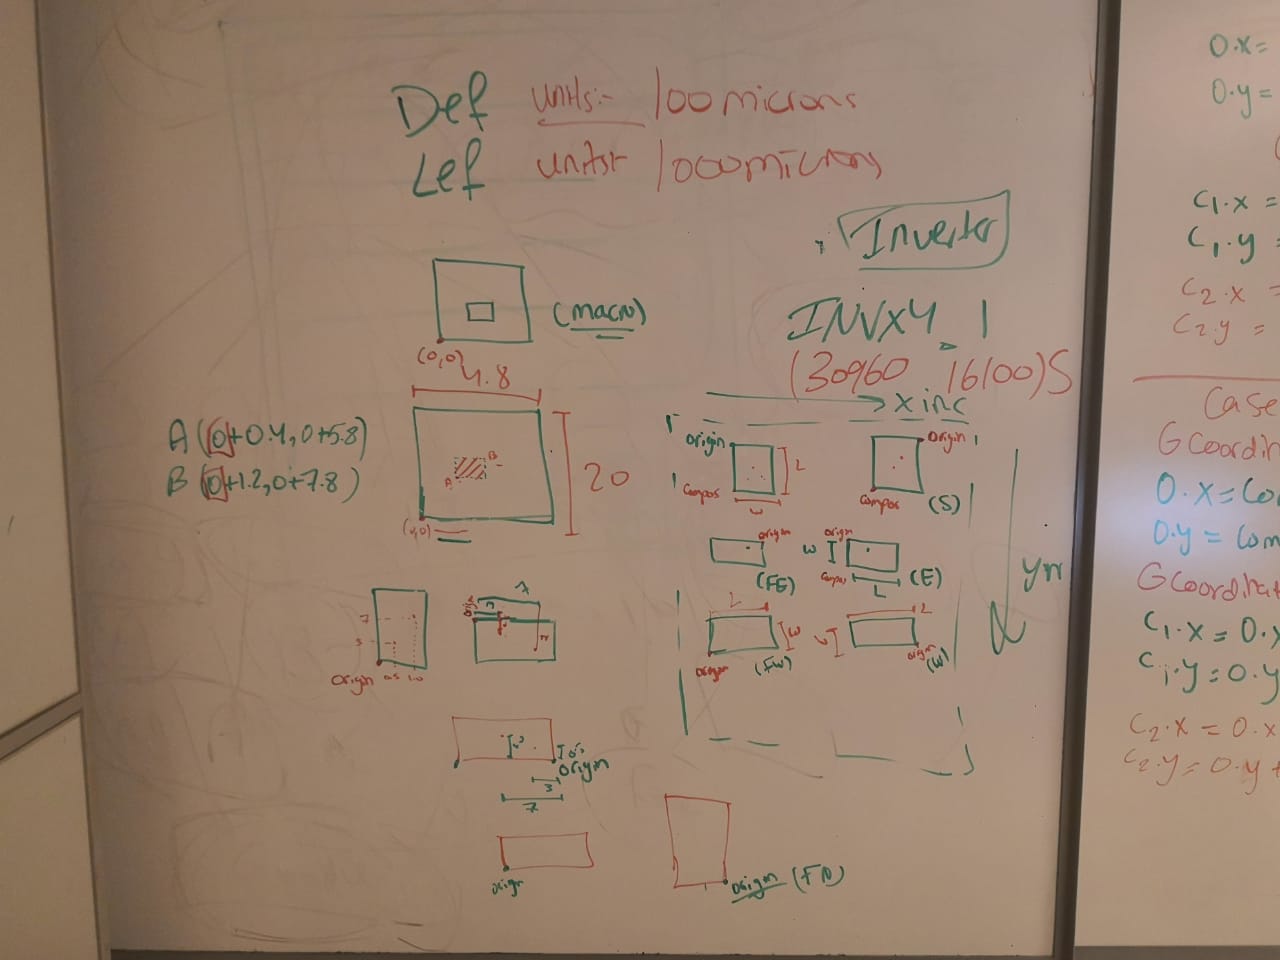 Def units:- 100 microns
Lef units:- 1000 microns
Inverter
(macro)
(0,0)
INVX4_1
(30960 16100)S
x inc
4.8
A (0+0.4, 0+5.8)
B (0+1.2, 0+7.8)
B
A
20
(0,0)
origin
L
compos
w
origin
compos
(S)
origin
(FE)
origin
w
compos
L
(E)
L
w
origin
(FW)
L
origin
(W)
7
3
origin 0.5 1.0
origin
3
7
origin
origin (FN)
O.x=
O.y=
C1.x =
C1.y =
C2.x =
C2.y =
Case
G coordin
O.x= Co
O.y = Com
G coordinat
C1.x = O.x
C1.y = O.y
C2.x = O.x
C2.y = O.y +